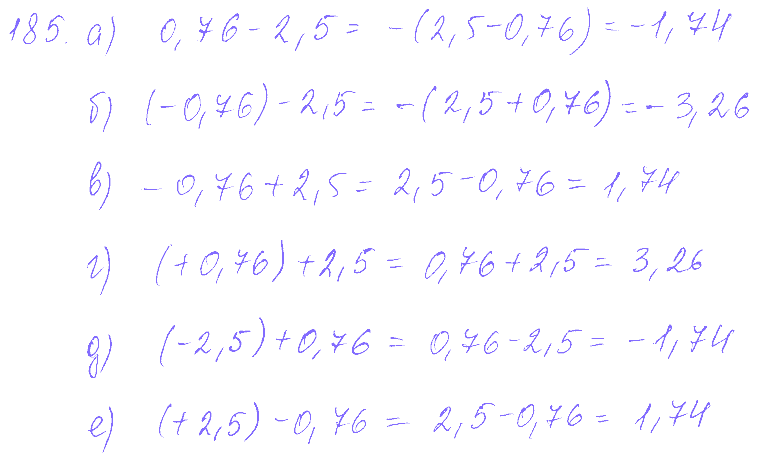 185. а) 0,76 - 2,5 = -(2,5 - 0,76) = -1,74
б) (-0,76) - 2,5 = -(2,5 + 0,76) = -3,26
в) -0,76 + 2,5 = 2,5 - 0,76 = 1,74
г) (+0,76) + 2,5 = 0,76 + 2,5 = 3,26
д) (-2,5) + 0,76 = 0,76 - 2,5 = -1,74
е) (+2,5) - 0,76 = 2,5 - 0,76 = 1,74